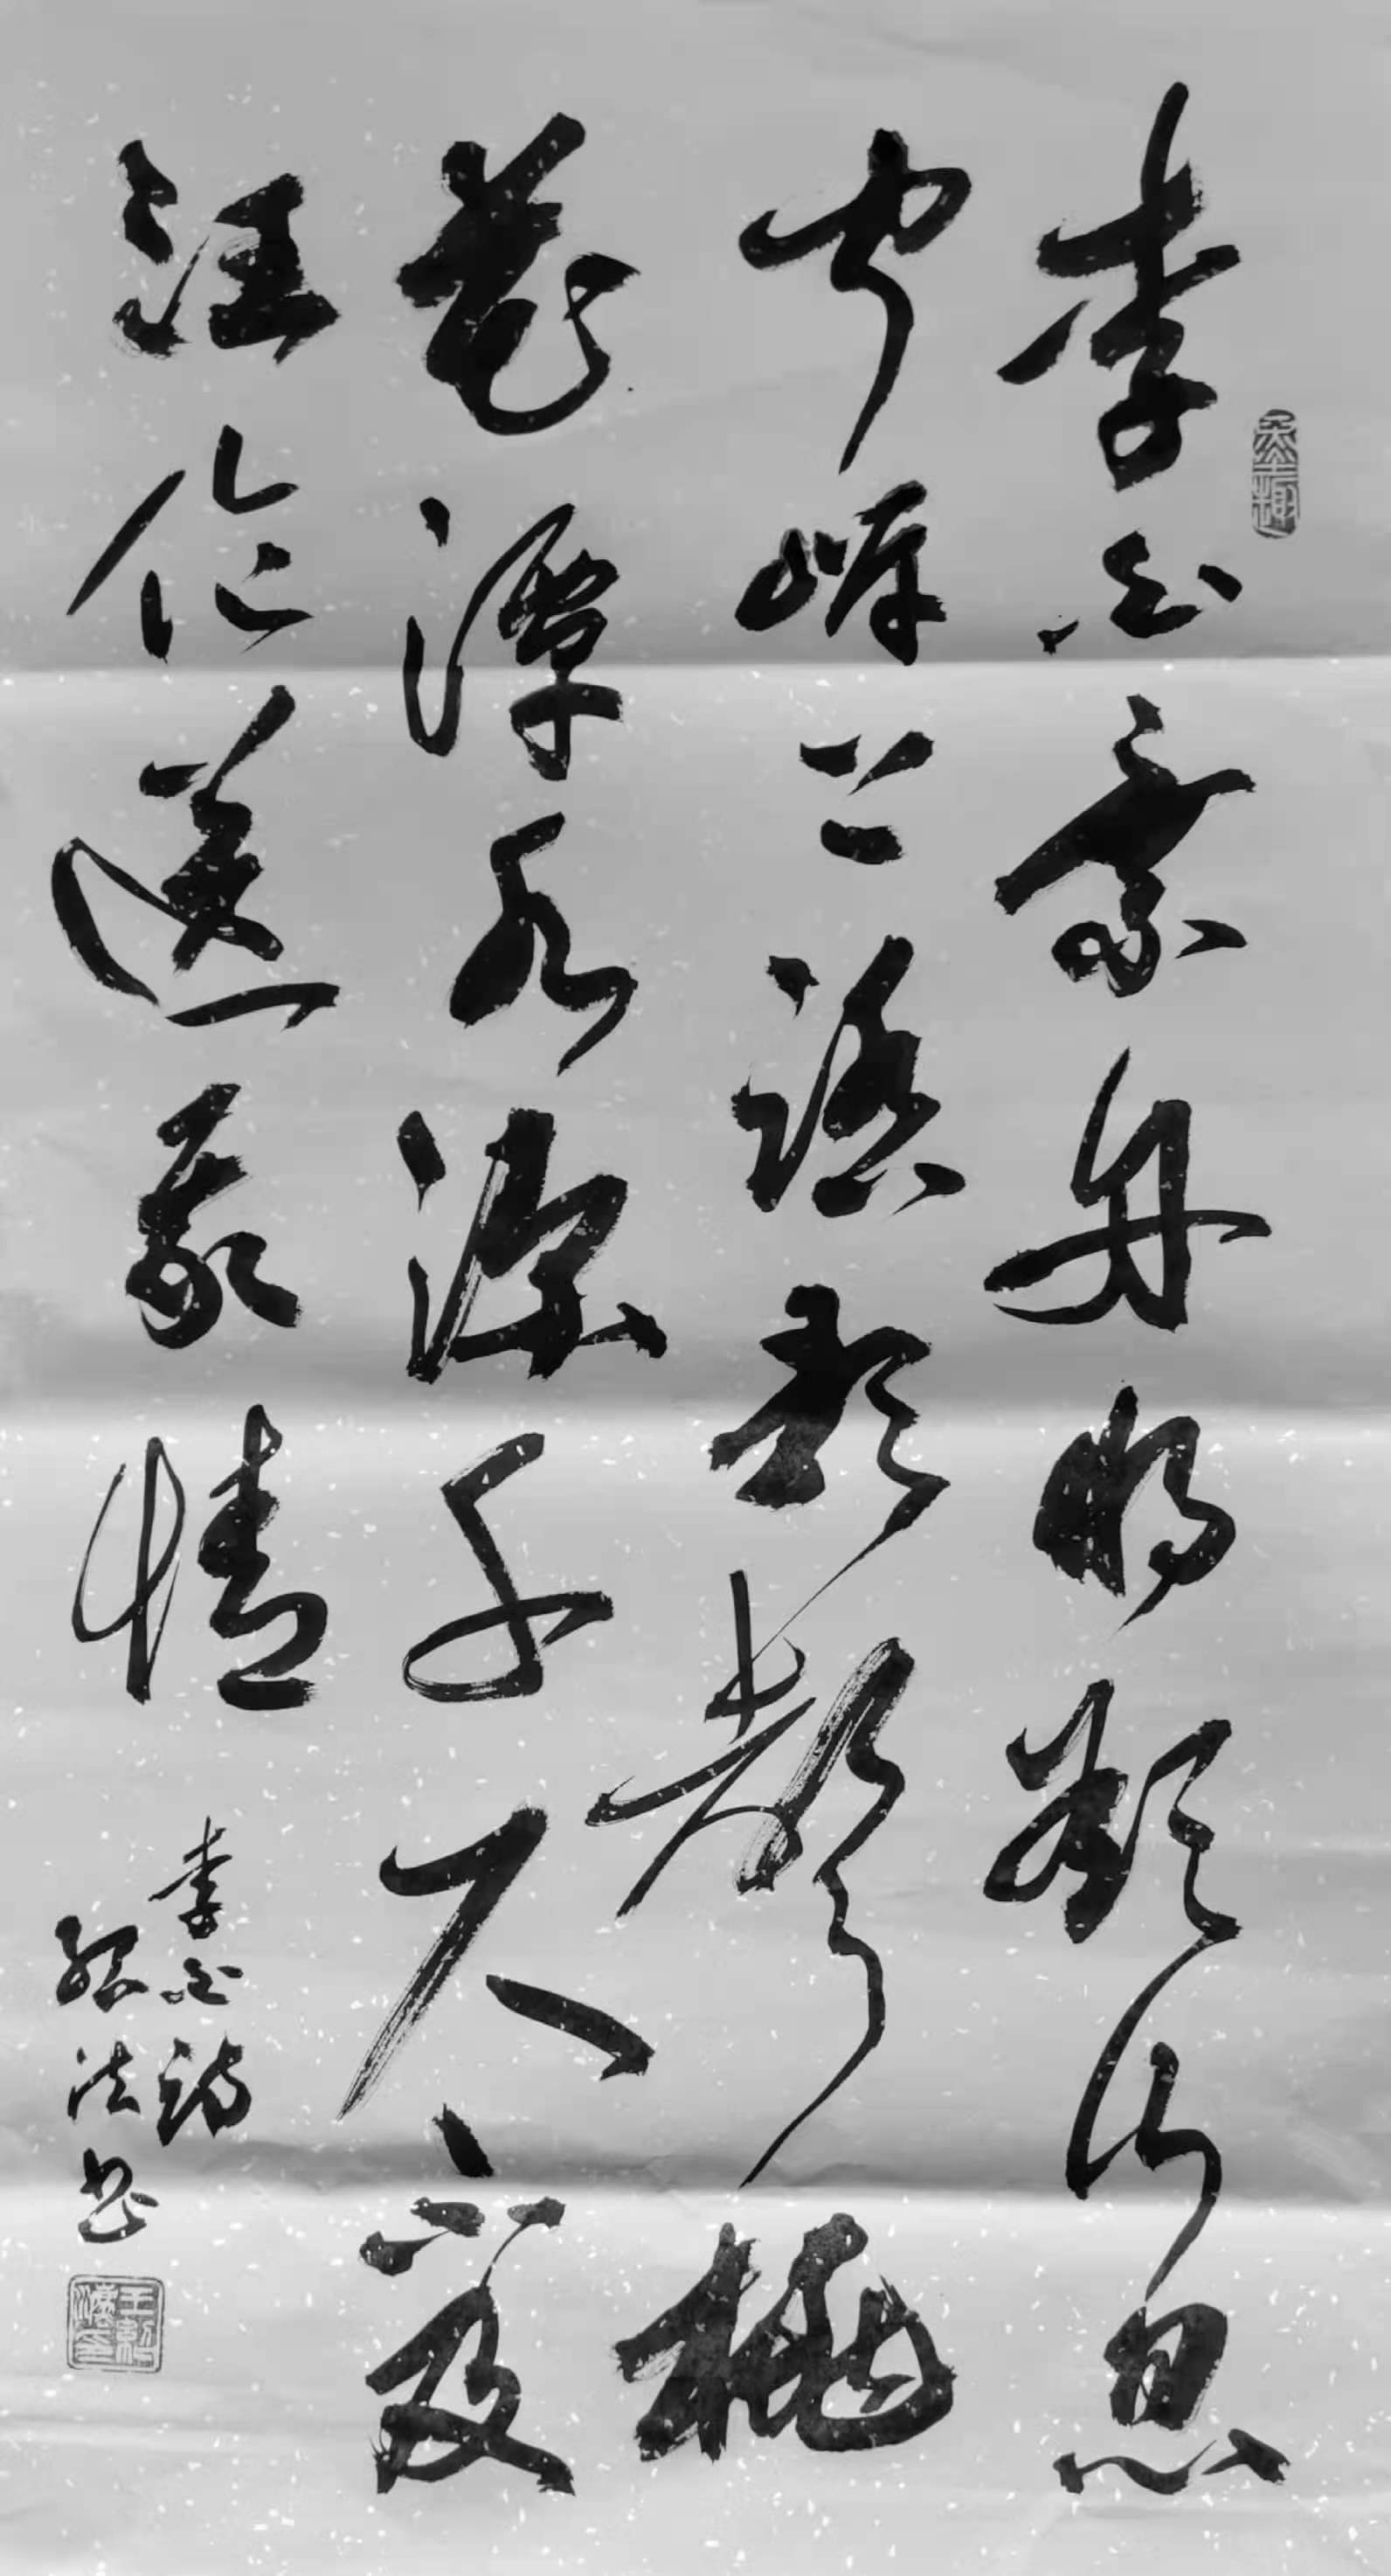 李白乘舟将欲行忽
闻岸上踏歌聲桃
花潭水深千尺不及
汪伦送我情
李白诗
法书
墨趣